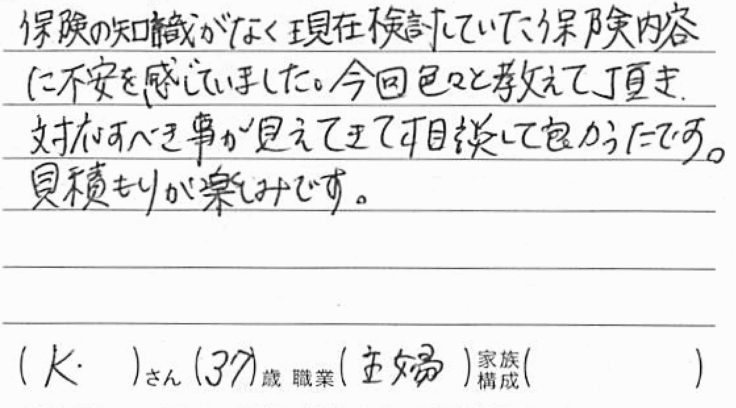 保険の知識がなく現在検討していた保険内容
に不安を感じていました。今回色々と教えて頂き、
対応すべき事が見えてきて相談して良かったです。
見積もりが楽しみです。
(K. )さん(37)歳 職業(主婦)家族構成( )